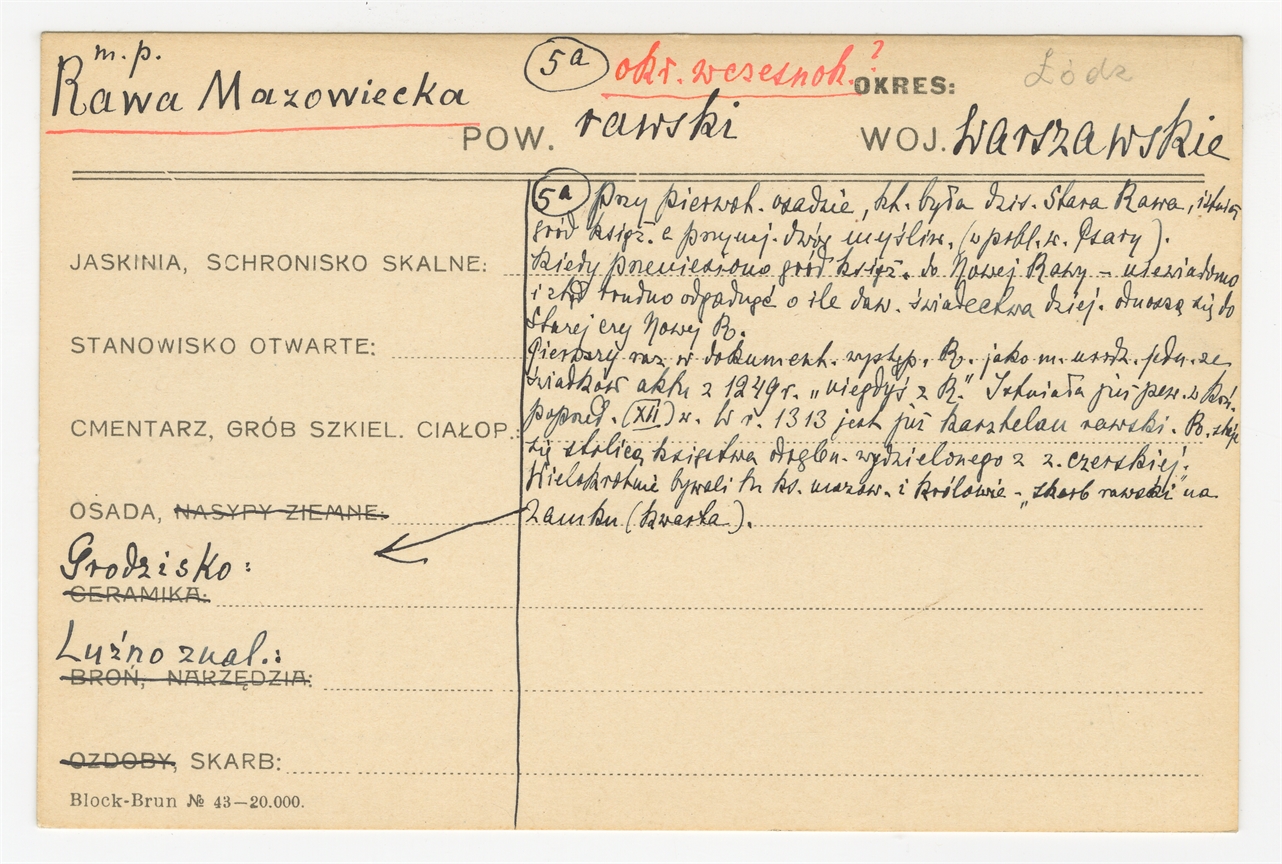 m. p.
Rawa Mazowiecka
5a okr. wczesnoh.?
OKRES:
Łódz
POW. rawski
WOJ. warszawskie
5a Przy pierwot. osadzie, kt. była dzis. Stara Rawa, istniał
gród książ. a przynaj. dwór myśliw. (w pobl. w. Psary).
Kiedy przeniesiono gród książ. do Nowej Rawy – niewiadomo
i stąd trudno odgadnąć o ile daw. świadectwa dziej. odnoszą się do
Starej czy Nowej R.
Pierwszy raz w dokument. występ. R. jako m. urodz. jedn. ze
świadków aktu z 1249 r. „niegdyś z R." Istniała już pew. w koń.
poprzed. (XII) w. W r. 1313 jest już kasztelan rawski. R. staje
się stolicą księstwa odrębn. wydzielonego z z. czerskiej.
Wielokrotnie bywali tu ks. mazow. i królowie – „skarb rawski" na
Zamku (kwarta).
JASKINIA, SCHRONISKO SKALNE:
STANOWISKO OTWARTE:
CMENTARZ, GRÓB SZKIEL. CIAŁOP.:
OSADA, NASYPY ZIEMNE:
Grodzisko:
CERAMIKA:
Luźno znal.:
BROŃ, NARZĘDZIA:
OZDOBY, SKARB:
Block-Brun № 43—20.000.